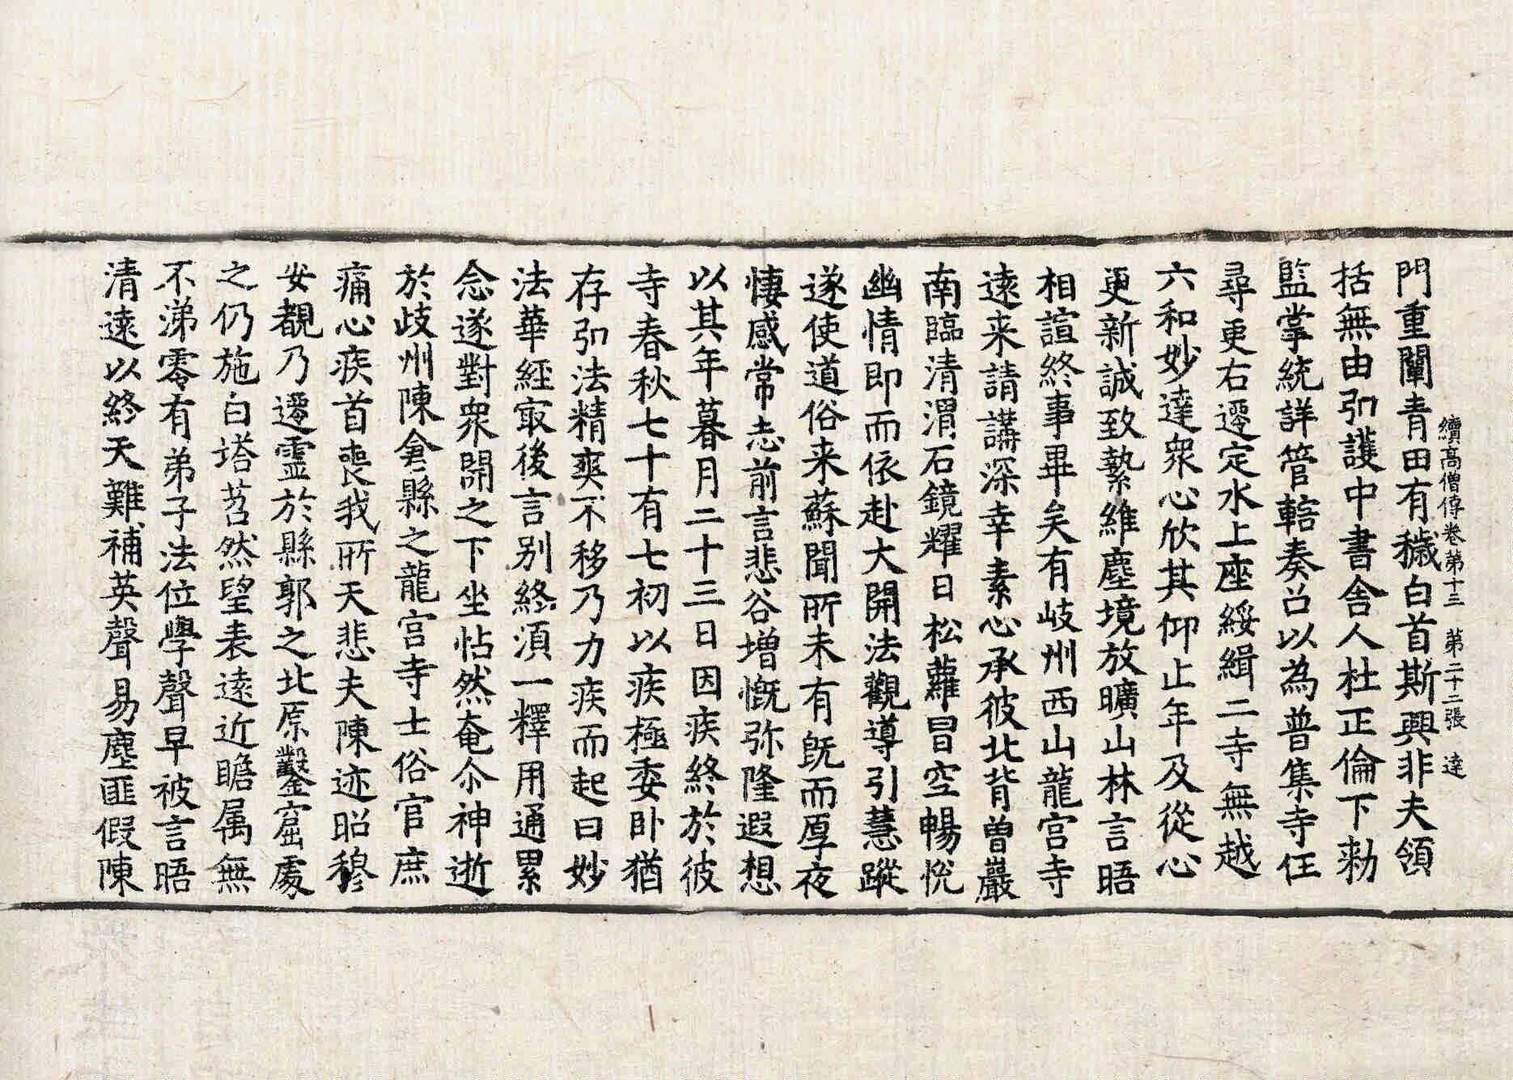 續高僧傳卷第十三　第二十二張　達
門重闡青田有穢白首斯興非夫領
括無由弘護中書舍人杜正倫下勑
監掌統詳管轄奏召以為普集寺任
尋更右遷定水上座綏緝二寺無越
六和妙達衆心欣其仰止年及從心
更新誠致縶維塵境放曠山林言晤
相諠終事畢矣有岐州西山龍宮寺
遠来請講深幸素心承彼北背曽巖
南臨清渭石鏡耀日松蘿冒空暢悅
幽情即而依赴大開法觀導引慧蹤
遂使道俗来蘇聞所未有旣而厚夜
悽感常志前言悲谷增慨弥隆遐想
以其年暮月二十三日因疾終於彼
寺春秋七十有七初以疾極委卧猶
存弘法精爽不移乃力疾而起曰妙
法華經㝡後言別終須一釋用通累
念遂對衆開之下坐怗然奄尒神逝
於歧州陳倉縣之龍宮寺士俗官庶
痛心疾首喪我所天悲夫陳迹昭穆
安覩乃遷靈於縣郭之北原鑿窟處
之仍施白塔苕然望表遠近瞻属無
不涕零有弟子法位學聲早被言晤
清遠以終天難補英聲易塵匪假陳